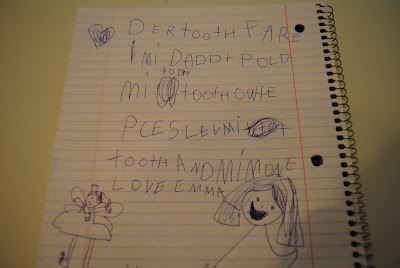 DERTOOTH FARE
MI DADDY POLD
TODAY
MI TOOTHOWTE
PLESLEVMI
TOOTH ANDMIMONE
LOVE EMMA